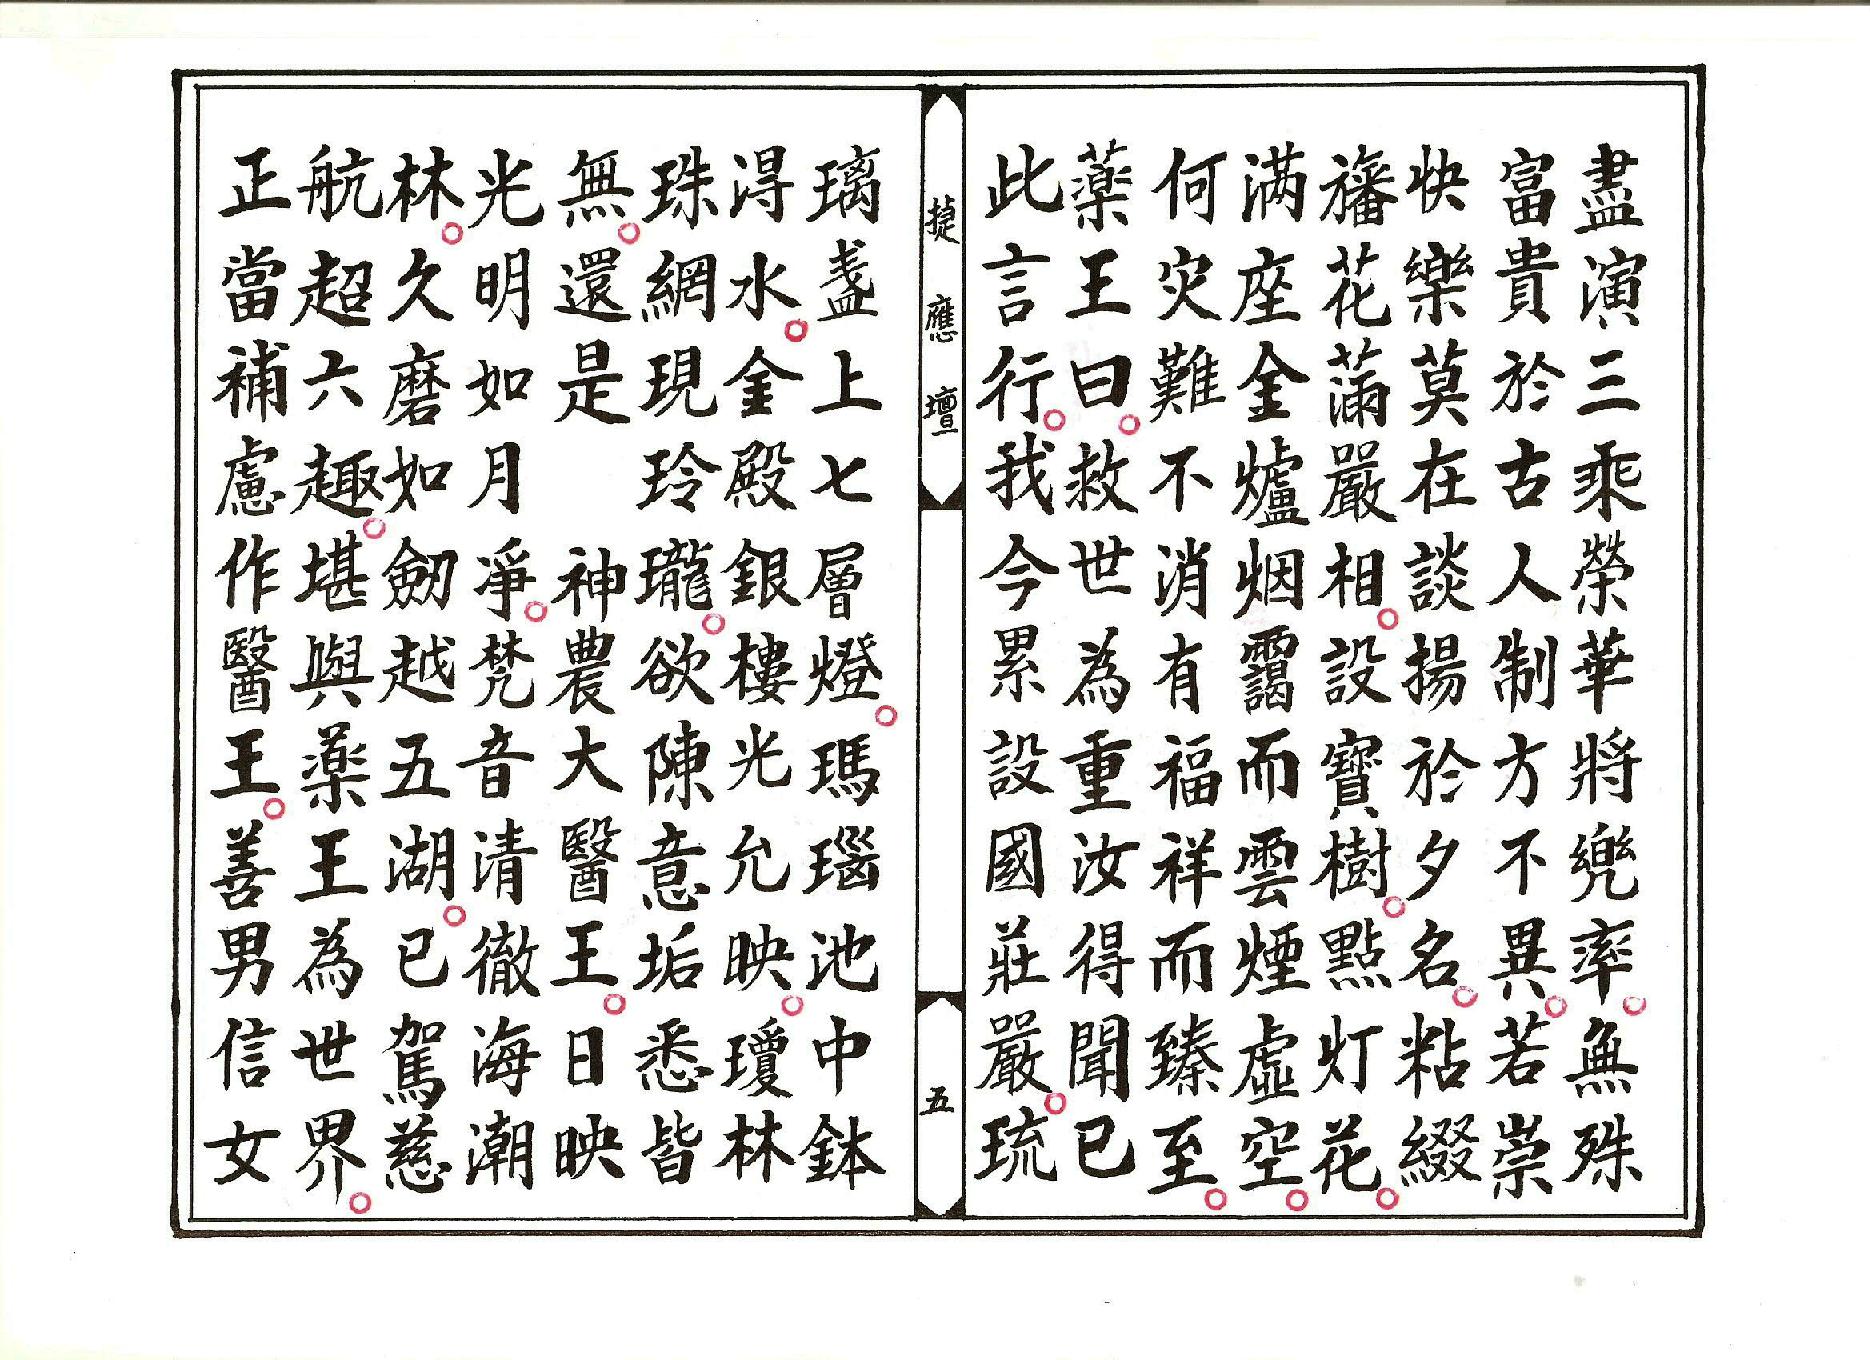 盡演三乘榮華將兠率。無殊
富貴於古人制方不異。若崇
快樂莫在談揚於夕名。粘綴
旛花滿嚴相。設寶樹。點灯花。
满座金爐烟靄而雲煙虛空。
何灾難不消有福祥而臻至。
薬王曰。救世為重汝得聞已
此言行。我今累設國莊嚴。琉
捷應壇
五
璃盞上七層燈。瑪瑙池中鉢
淂水。金殿銀樓光允映。瓊林
珠網現玲瓏。欲陳意垢悉皆
無。還是 神農大醫王。日映
光明如月凈。梵音清徹海潮
林。久磨如劒越五湖。已駕慈
航超六趣。堪與薬王為世界。
正當補處作醫王。善男信女